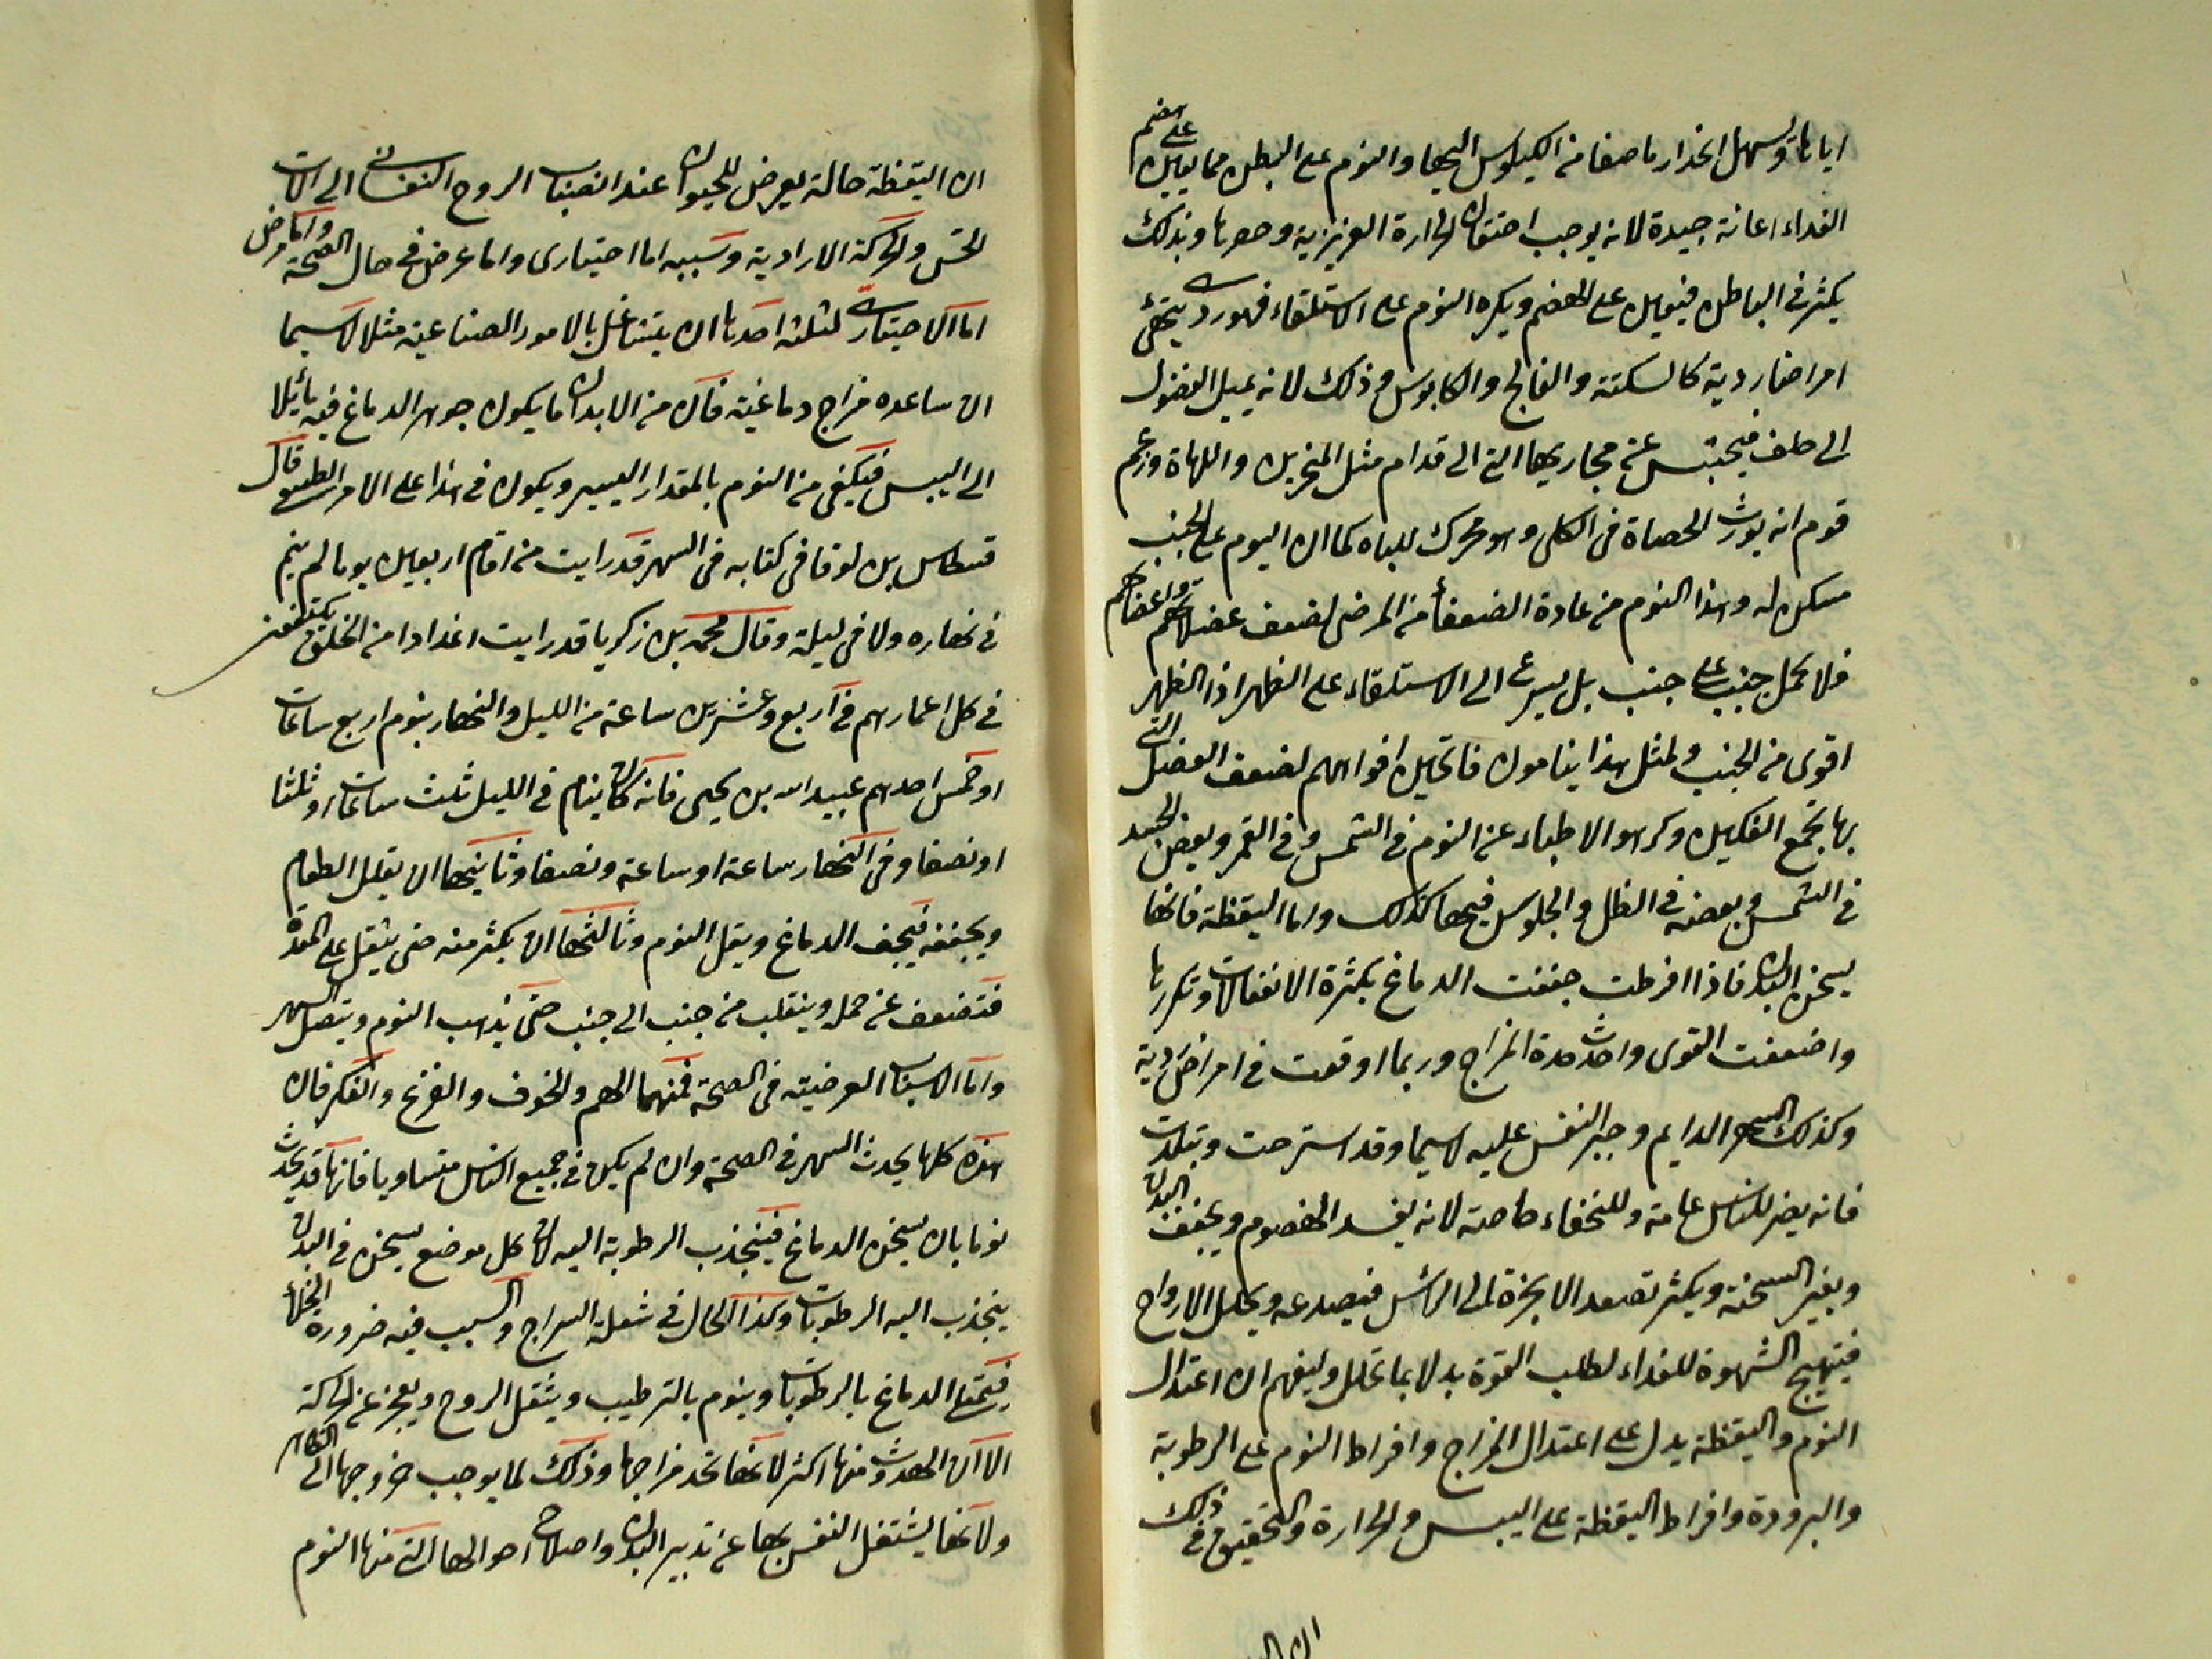 اياها ويسهل انحدار ما صفا من الكيلوس اليها والنوم على البطن مما يعين على هضم
الغداء اعانة جيدة لانه يوجب احتقان الحرارة الغريزية وحصرها وبذلك
يكثر في الباطن فيعين على الهضم ويكره النوم على الاستلقاء فهو ردى يتهيئ
امراضا ردية كالسكتة والفالج والكابوس وذلك لانه يميل الفضول
الى خلف فيحتبس عن مجاريها التي الى قدام مثل المنخرين واللهاة وزعم
قوم انه يورث الحصاة في الكلى وهو محرك للباه كما ان النوم على الجنب
مسكن له وهذا النوم من عادة الضعفاء من المرضى لضعف عضلاتهم واعضائهم
فلا يحمل جنب على جنب بل يسرع الى الاستلقاء على الظهر اذ الظهر
اقوى من الجنب ولمثل هذا ينامون فاتحين افواههم لضعف العضل التي
بها تجمع الفكين وكرهوا الاطباء عن النوم في الشمس وفي القمر وبعض الجسد
في الشمس وبعضه في الظل والجلوس فيها كذلك واما اليقظة فانها
يسخن البدن فاذا افرطت جففت الدماغ بكثرة الانفعالات وتكررها
واضعفت القوى واحدث حدة المزاج وربما اوقعت في امراض ردية
وكذلك السهر الدايم وجبر النفس عليه لاسيما وقد استرخت وتبلدت
فانه يضر للناس عامة وللنحفاء خاصة لانه يفسد الهضوم ويجفف البدن
ويغير السحنة ويكثر تصعد الابخرة الى الراس فيصدعه ويحلل الارواح
فيتهيج الشهوة للغداء لطلب القوة بدلا بما تحلل وليفهم ان اعتدال
النوم واليقظة يدل على اعتدال المزاج وافراط النوم على الرطوبة
والبرودة وافراط اليقظة على اليبس والحرارة والتحقيق في ذلك
ان اليقظة حالة يعرض للحيوان عند انصباب الروح النفساني الى الات
الحس والحركة الارادية وسببه اما اختيارى واما عرض في حال الصحة واما مرض
اما الاختيارى لثلثة احدها ان يتشاغل بالامور الصناعية مثلا لاسيما
ان ساعده مزاج دماغية فان من الابدان ما يكون جوهر الدماغ فيه مائلا
الى اليبس فيكفى من النوم بالمقدار اليسير ويكون في هذا على الامر الطبيعى قال
قسطا بن لوقا في كتابه في السهر قد رايت من اقام اربعين يوما لم ينم
في نهاره ولا في ليلة وقال محمد بن زكريا قد رايت اعدادا من الخلق يكتفون
في كل اعمارهم في اربع وعشرين ساعة من الليل والنهار بنوم اربع ساعات
او خمس احدهم عبيد الله بن يحيى فانه كان ينام في الليل ثلث ساعات او ثلثا
او نصفا وفي النهار ساعة او ساعة ونصفا وثانيها ان يقلل الطعام
ويجففه فيجف الدماغ ويقل النوم وثالثها ان يكثر منه حتى يثقل على المعدة
فتضعف عن حمله وينقلب من جنب الى جنب حتى يذهب النوم ويتصل السهر
واما الاسباب العرضية في الصحة فمنها الهم والخوف والفزع والفكر فان
هذه كلها يحدث السهر في الصحة وان لم يكن في جميع الناس متساويا فانها قد يحدث
نوما بان يسخن الدماغ فينجذب الرطوبة اليه لان كل موضع يسخن في البدن
ينجذب اليه الرطوبات وكذا الحال في شعلة السراج والسبب فيه ضرورة الخلأ
فيمتلئ الدماغ بالرطوبات وينوم بالترطيب ويثقل الروح ويعجز عن الحركة
الا ان الحدوث منها اكثر لانها تحد مزاجها وذلك لما يوجب خروجها الى الظاهر
ولانها يشتغل النفس بها عن تدبير البدن واصلاح احوالها التي منها النوم